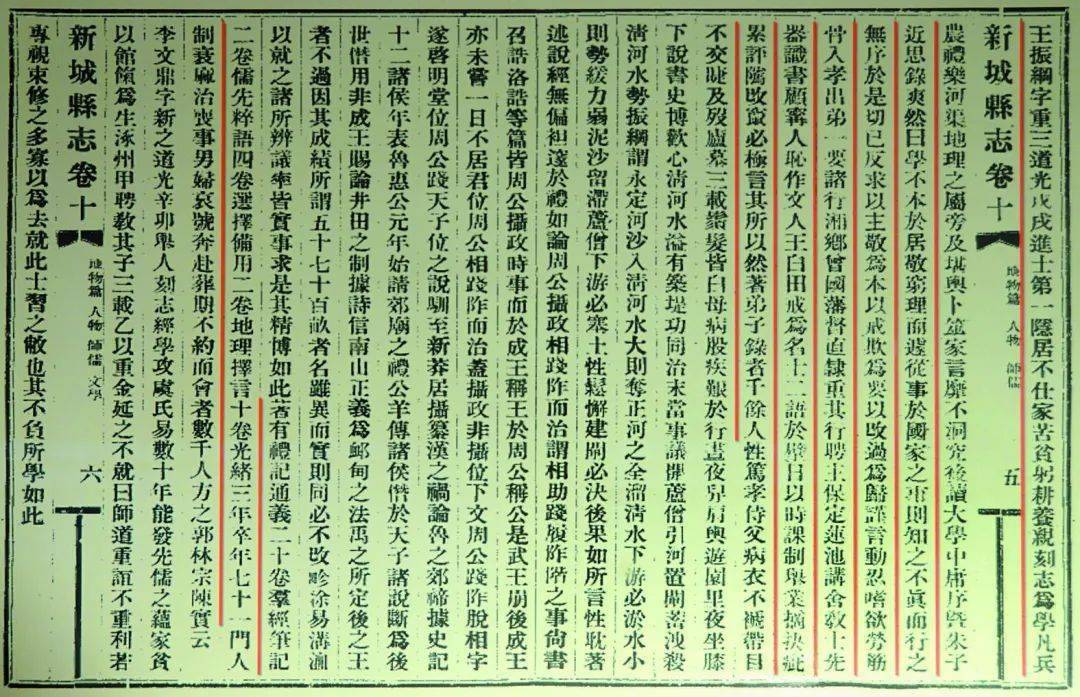 王振綱字重三道光戊戌進士第一隱居不仕家苦貧躬耕養親刻志為學凡兵
新城縣志卷十
地物篇 人物 師儒
五
農禮樂河渠地理之屬旁及堪輿卜筮家言靡不洞究後讀大學中庸序暨朱子
近思錄爽然曰學不本於居敬窮理而遽從事於國家之事則知之不真而行之
無序於是切已反求以主敬為本以戒欺為要以改過為歸謹言動忍嗜欲勞筋
骨入孝出弟一要諸行湘鄉曾國藩督直隸重其行聘主保定蓮池講舍教士先
器識書顧寗人恥作文人王白田戒為名士二語於壁日以時課制舉業摘抉疵
累評隲改竄必極言其所以然著弟子錄者千餘人性篤孝侍父病衣不褫帶目
不交睫及歿廬墓三載鬚髮皆白母病股疾艱於行晝夜舁肩輿遊園里夜坐膝
下說書史博歡心淸河水溢有築堤功同治末當事議開蘆僧引河置閘蓄洩殺
淸河水勢振綱謂永定河沙入淸河水大則奪正河之全溜淸水下游必淤水小
則勢緩力弱泥沙留滯蘆僧下游必塞土性鬆懈建閘必決後果如所言性耽著
述說經無偏袒邃於禮如論周公攝政相踐阼而治謂相助踐履阼階之事尙書
召誥洛誥等篇皆周公攝政時事而於成王稱王於周公稱公是武王崩後成王
亦未嘗一日不居君位周公相踐阼而治蓋攝政非攝位下文周公踐阼脫相字
遂啓明堂位周公踐天子位之說馴至新莽居攝纂漢之禍論魯之郊禘據史記
十二諸侯年表魯惠公元年始請郊廟之禮公羊傳諸侯僭於天子諸說斷為後
世僭用非成王賜論井田之制據詩信南山正義為邱甸之法禹之所定後之王
者不過因其成績所謂五十七十百畝者名雖異而實則同必不改畛涂易溝洫
以就之諸所辨議率皆實事求是其精博如此著有禮記通義二十卷羣經筆記
二卷儒先粹語四卷選擇備用二卷地理擇言十卷光緒三年卒年七十一門人
制衰麻治喪事男婦哀號奔赴葬期不約而會者數千人方之郭林宗陳實云
李文鼎字新之道光辛卯舉人刻志經學攻虞氏易數十年能發先儒之蘊家貧
以館穀為生涿州甲聘敎其子三載乙以重金延之不就曰師道重誼不重利若
新城縣志卷十
地物篇 人物 師儒 文學
六
專視束修之多寡以為去就此士習之敝也其不負所學如此